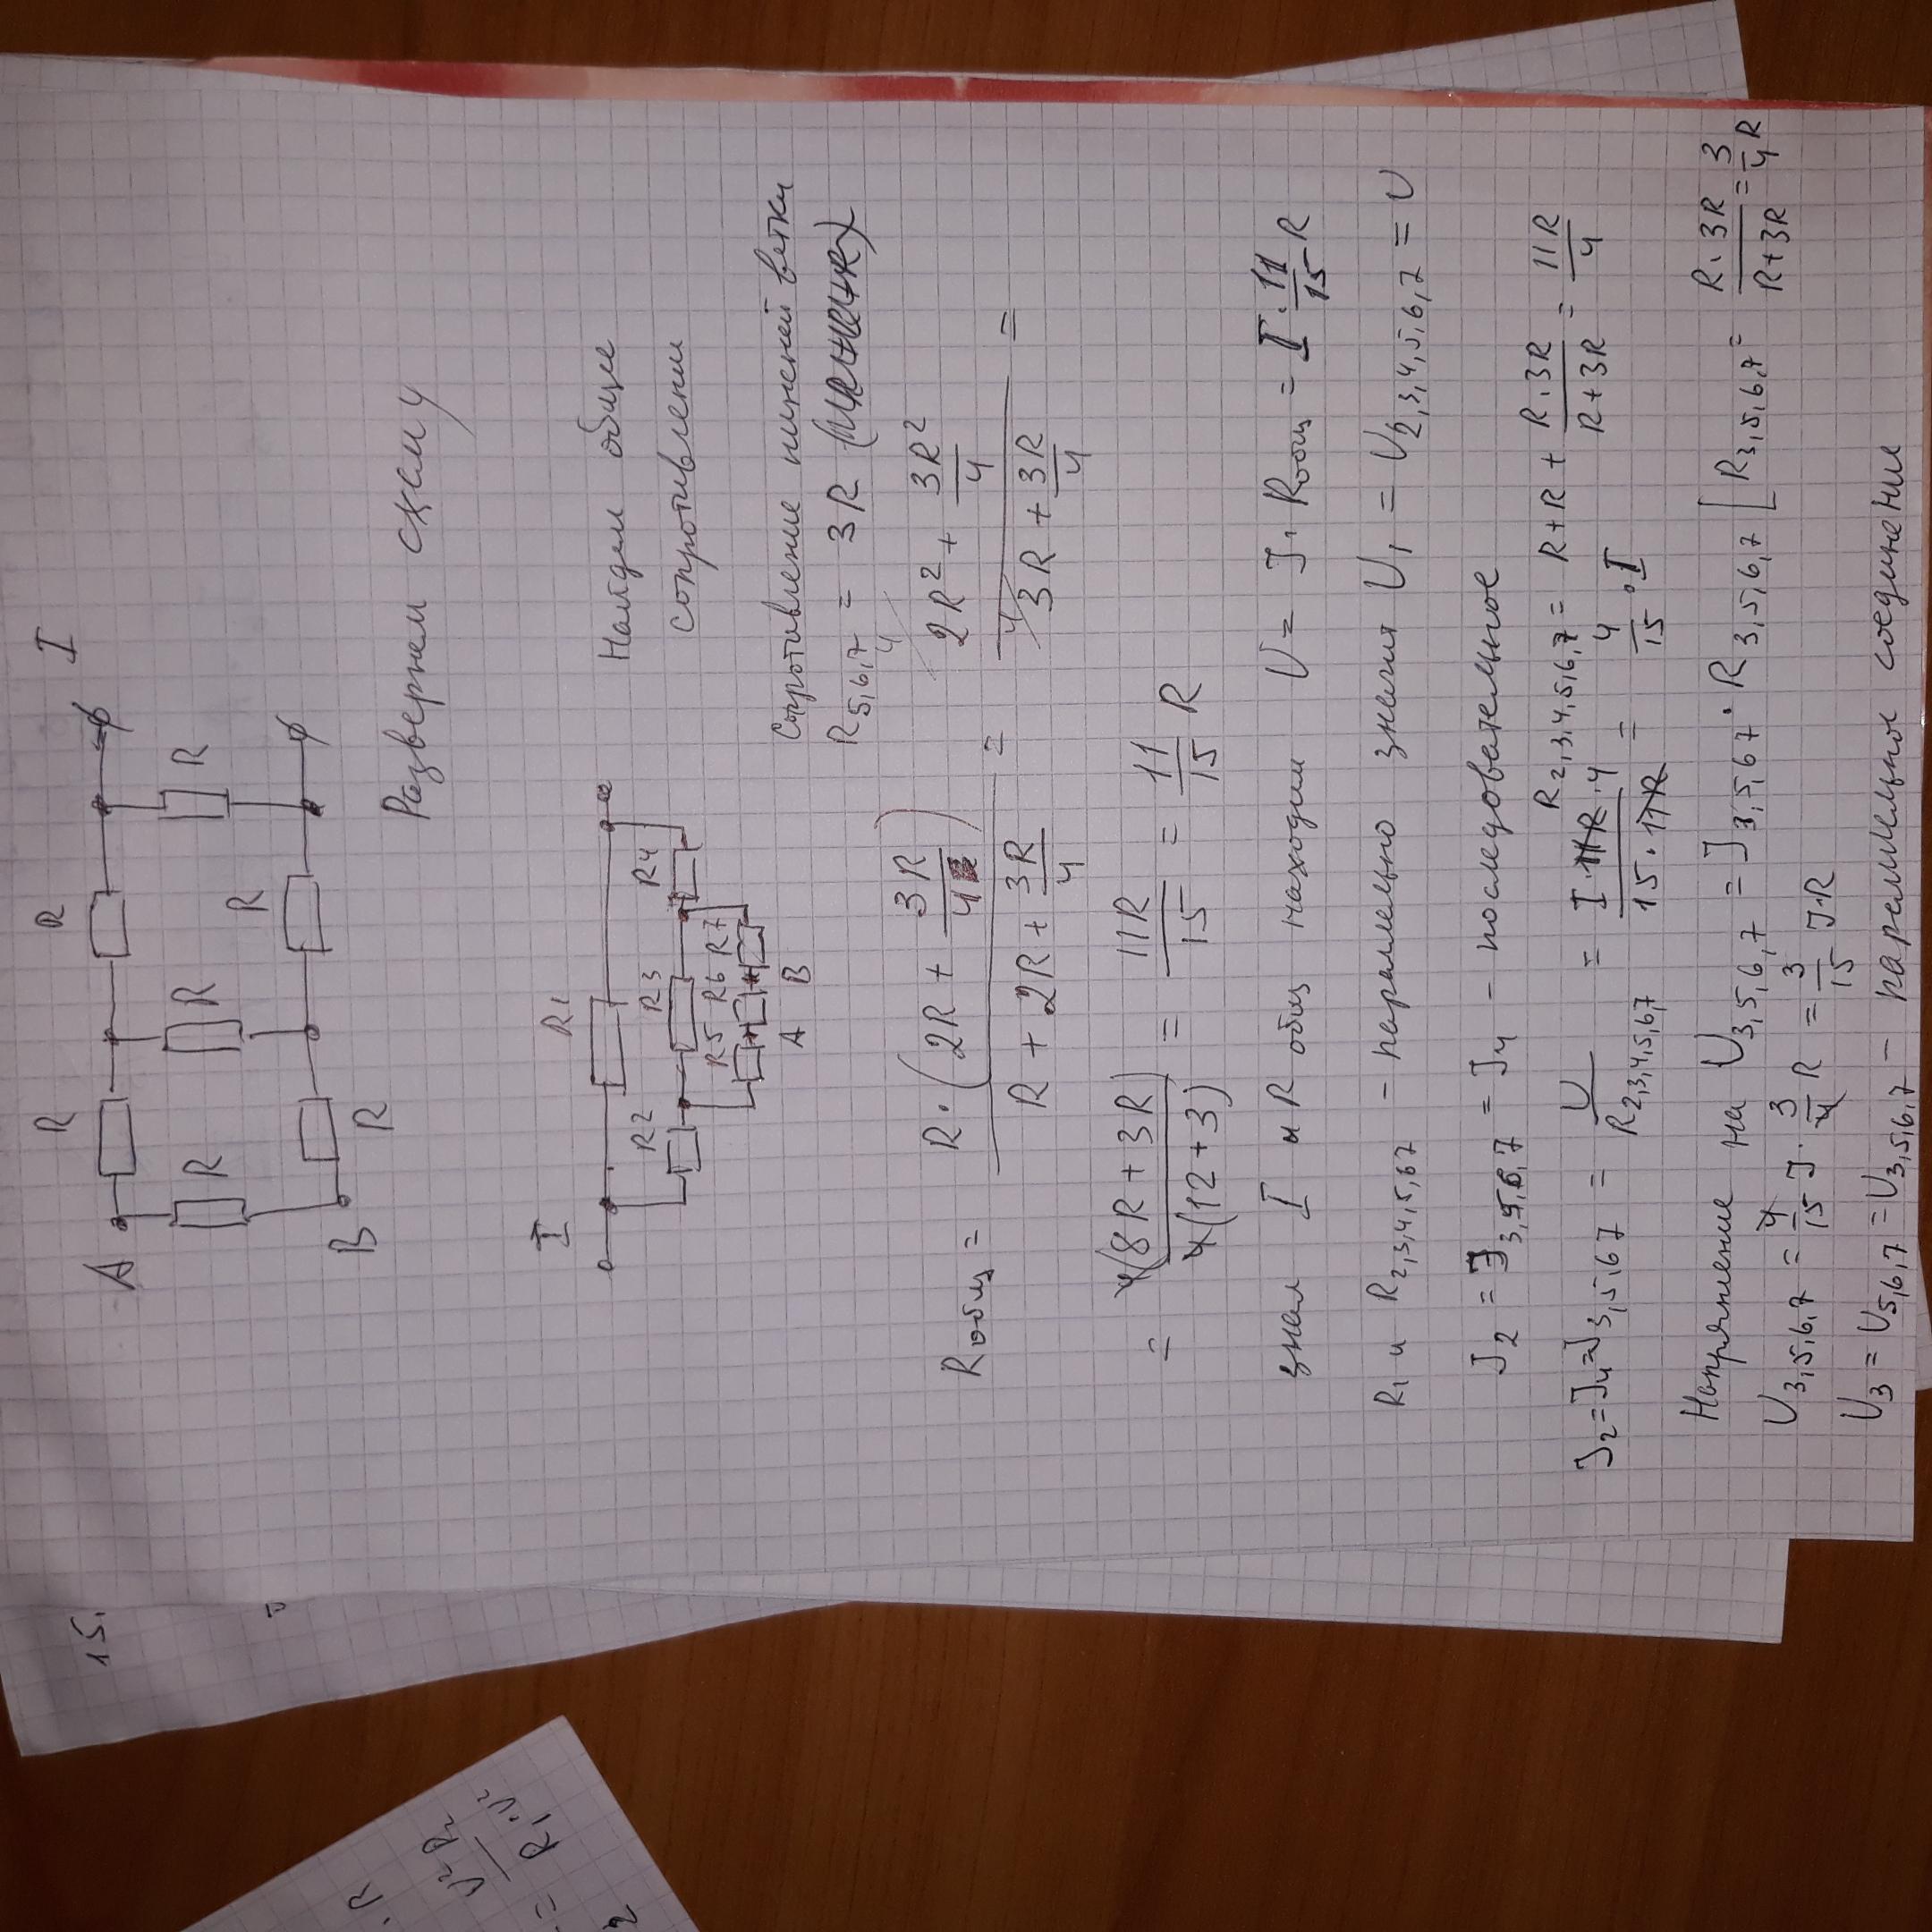 15.
I
R R
R R R
A
R R
B
Развернем схему
I
R1
R2 R3 R4
R5 R6 R7
A B
Найдем общее
сопротивлени
Сопротивление нижней ветки
R5,6,7 = 3R
Rобщ = R·(2R + 3R/4) / (R + 2R + 3R/4) = (2R² + 3R²/4) / (3R + 3R/4) =
= 4(8R + 3R) / 4(12 + 3) = 11R/15 = 11/15 R
зная I и R общ находим U = I · Rобщ = I · 11/15 R
R1 и R2,3,4,5,67 – параллельно значит U1 = U2,3,4,5,6,7 = U
J2 = J3,5,6,7 = J4 – последовательное
R2,3,4,5,6,7 = R+R + R·3R/(R+3R) = 11R/4
J2=J4=J3,5,67 = U/R2,3,4,5,6,7 = I·11R·4/(15·11R) = 4/15 · I
Напряжение на U3,5,6,7 = J3,5,67 · R3,5,6,7 [R3,5,6,7 = R·3R/(R+3R) = 3/4 R
U3,5,6,7 = 4/15 J · 3/4 R = 3/15 J·R
U3 = U5,6,7 = U3,5,6,7 – параллельное соединение
·R
U² R2
R1·U²
=
2